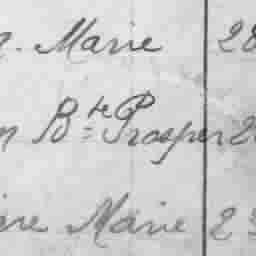 Marie 28
Bte Prosper 2
Marie 23